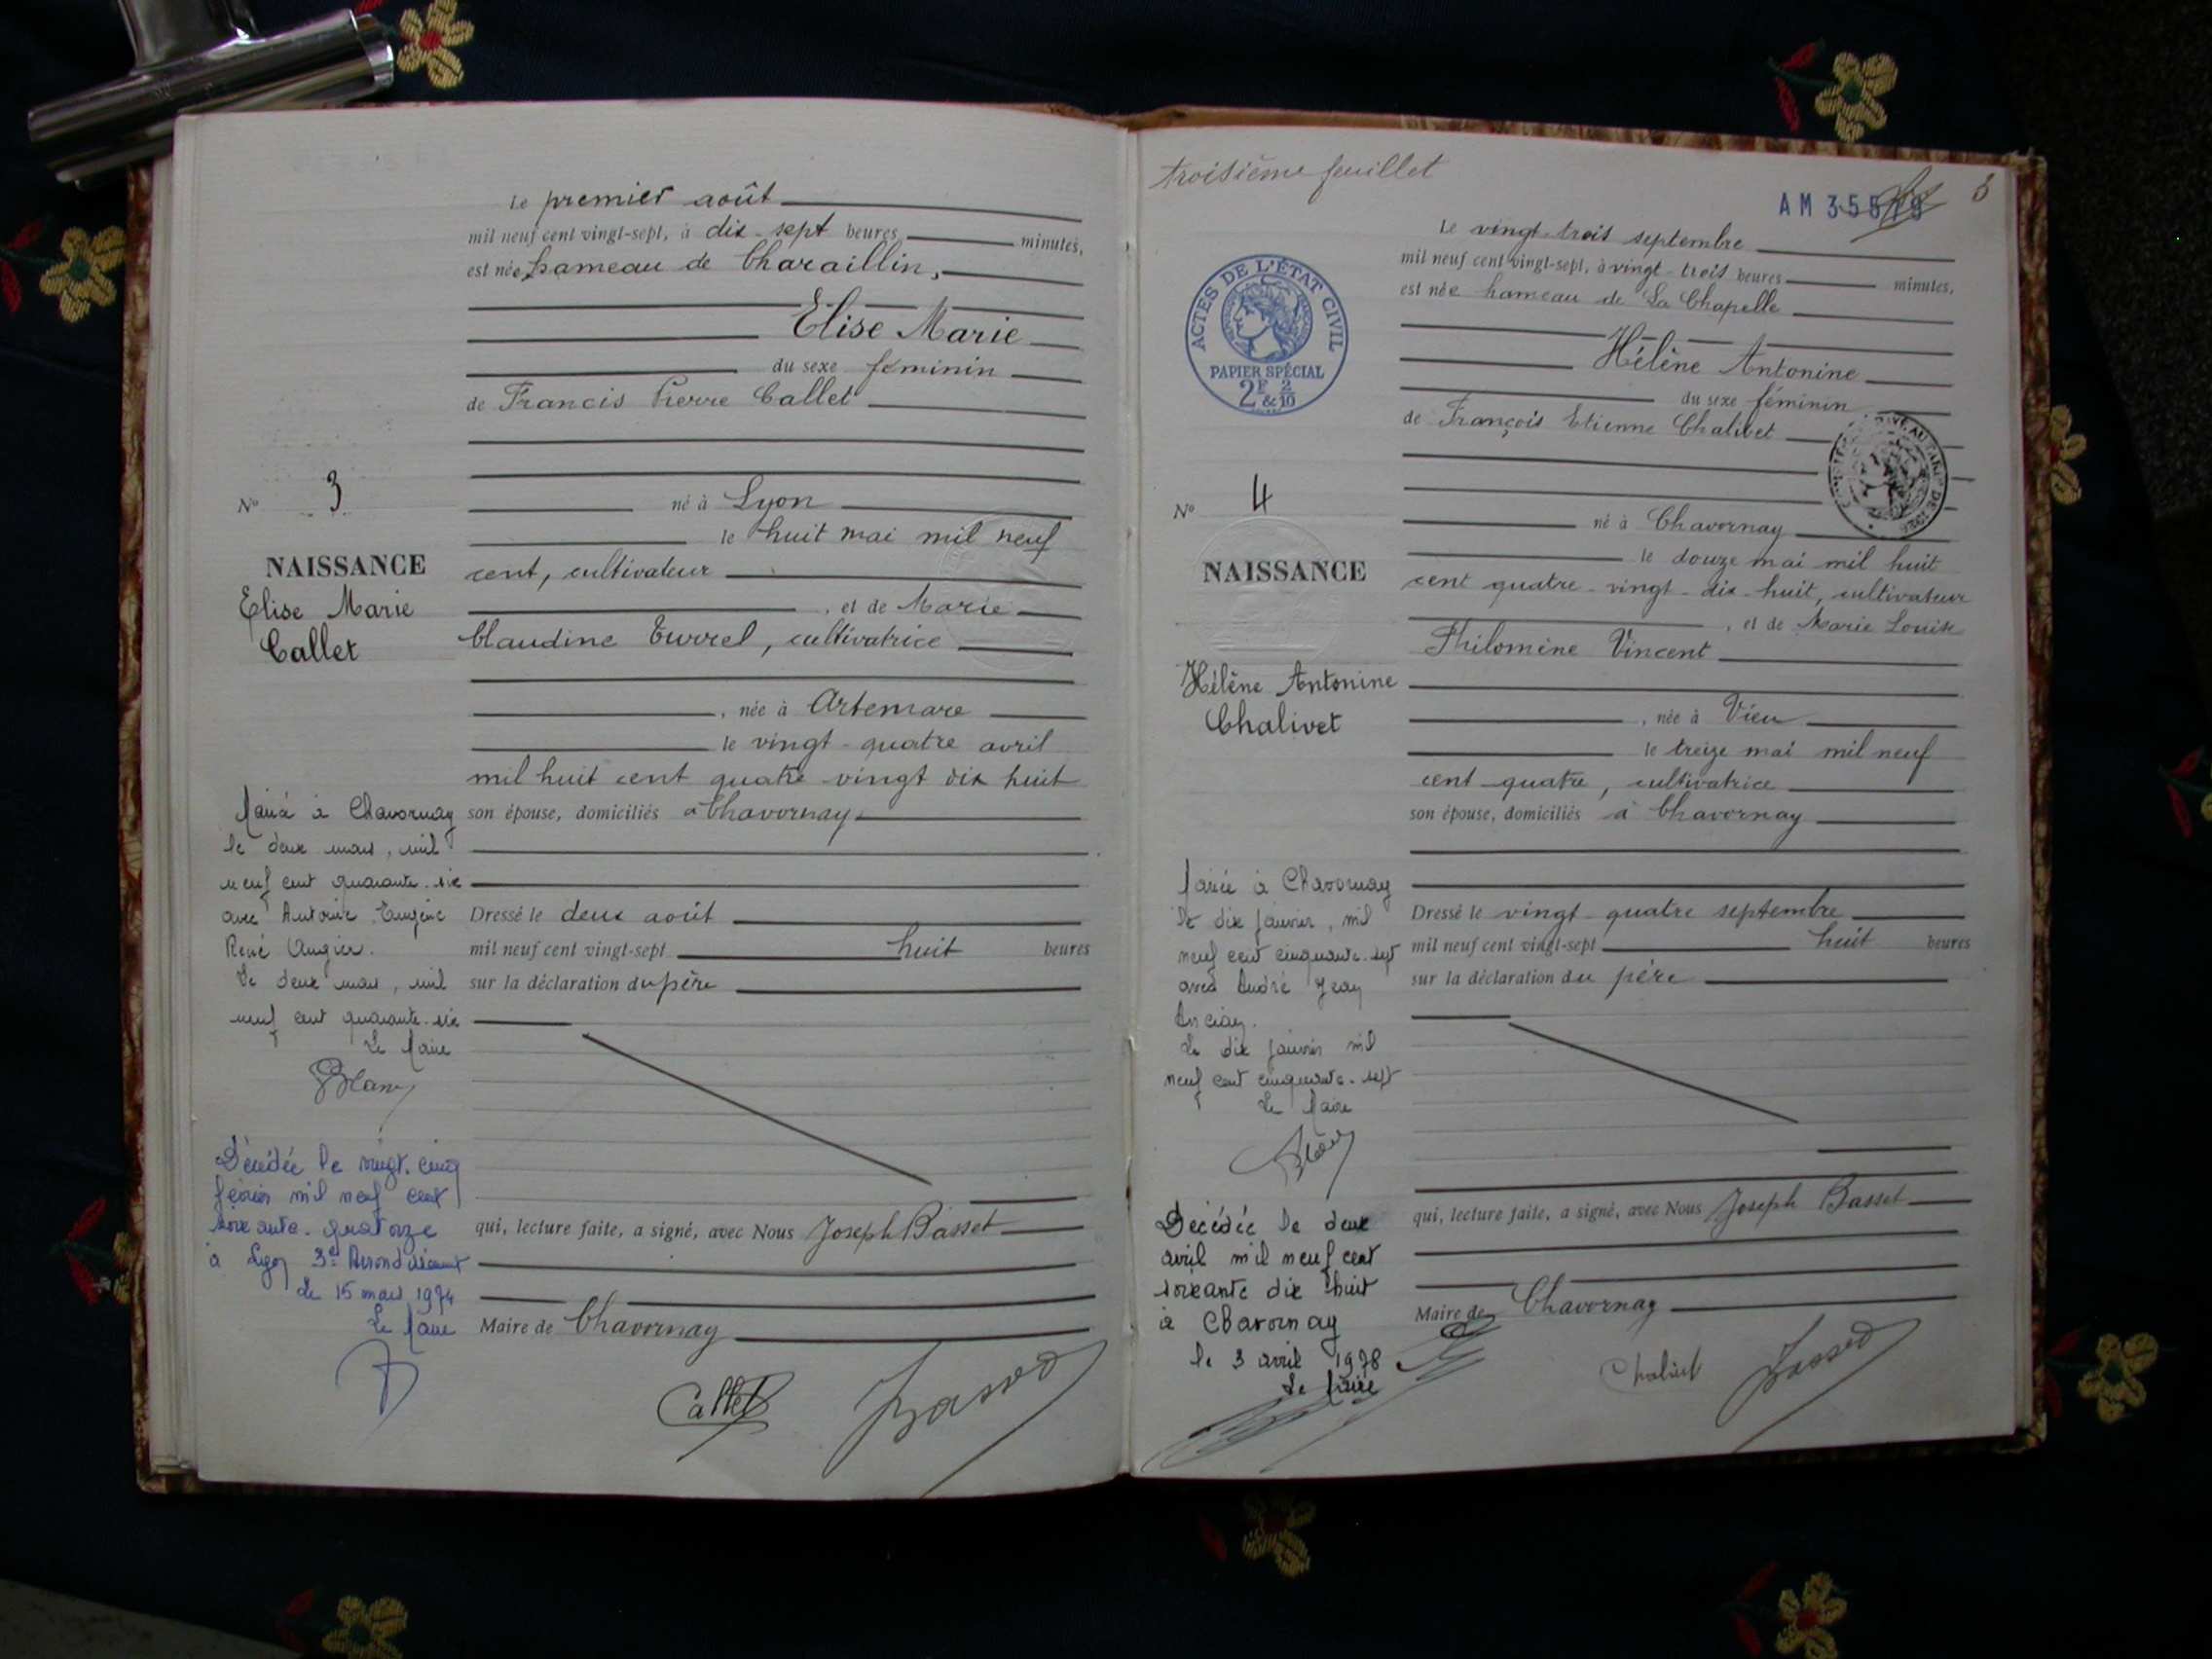 Le premier août
mil neuf cent vingt-sept, à dix-sept heures minutes,
est née hameau de Charaillin,
Elise Marie
du sexe féminin
de Francis Pierre Callet
né à Lyon
le huit mai mil neuf
cent, cultivateur
, et de Marie
Claudine Turrel, cultivatrice
, née à Artemare
le vingt-quatre avril
mil huit cent quatre-vingt dix huit
son épouse, domiciliés à Chavornay
Dressé le deux août
mil neuf cent vingt-sept huit heures
sur la déclaration du père
qui, lecture faite, a signé, avec Nous Joseph Basset
Maire de Chavornay
Callet Basset
N° 3
NAISSANCE
Elise Marie
Callet
Mariée à Chavornay
le deux mars, mil
neuf cent quarante-six
avec Antoine Eugène
René Augier.
Le deux mars, mil
neuf cent quarante-six
Le Maire
Décédée le vingt-cinq
février mil neuf cent
soixante-quatorze
à Lyon 3e Arrondissement
Le 15 mars 1974
Le Maire
troisième feuillet
3
AM 35579
ACTES DE L'ÉTAT CIVIL
PAPIER SPÉCIAL
2F & 2/10
Le vingt-trois septembre
mil neuf cent vingt-sept, à vingt-trois heures minutes,
est née hameau de La Chapelle
Hélène Antonine
du sexe féminin
de François Etienne Chalivet
né à Chavornay
le douze mai mil huit
cent quatre-vingt-dix-huit, cultivateur
, et de Marie Louise
Philomène Vincent
, née à Vieu
le treize mai mil neuf
cent quatre, cultivatrice
son épouse, domiciliés à Chavornay
Dressé le vingt-quatre septembre
mil neuf cent vingt-sept huit heures
sur la déclaration du père
qui, lecture faite, a signé, avec Nous Joseph Basset
Maire de Chavornay
Chalivet Basset
N° 4
NAISSANCE
Hélène Antonine
Chalivet
Mariée à Chavornay
le dix janvier, mil
neuf cent cinquante-sept
avec André Jean
Le dix janvier mil
neuf cent cinquante-sept
Le Maire
Décédée le deux
avril mil neuf cent
soixante dix huit
à Chavornay
le 3 avril 1978
Le Maire